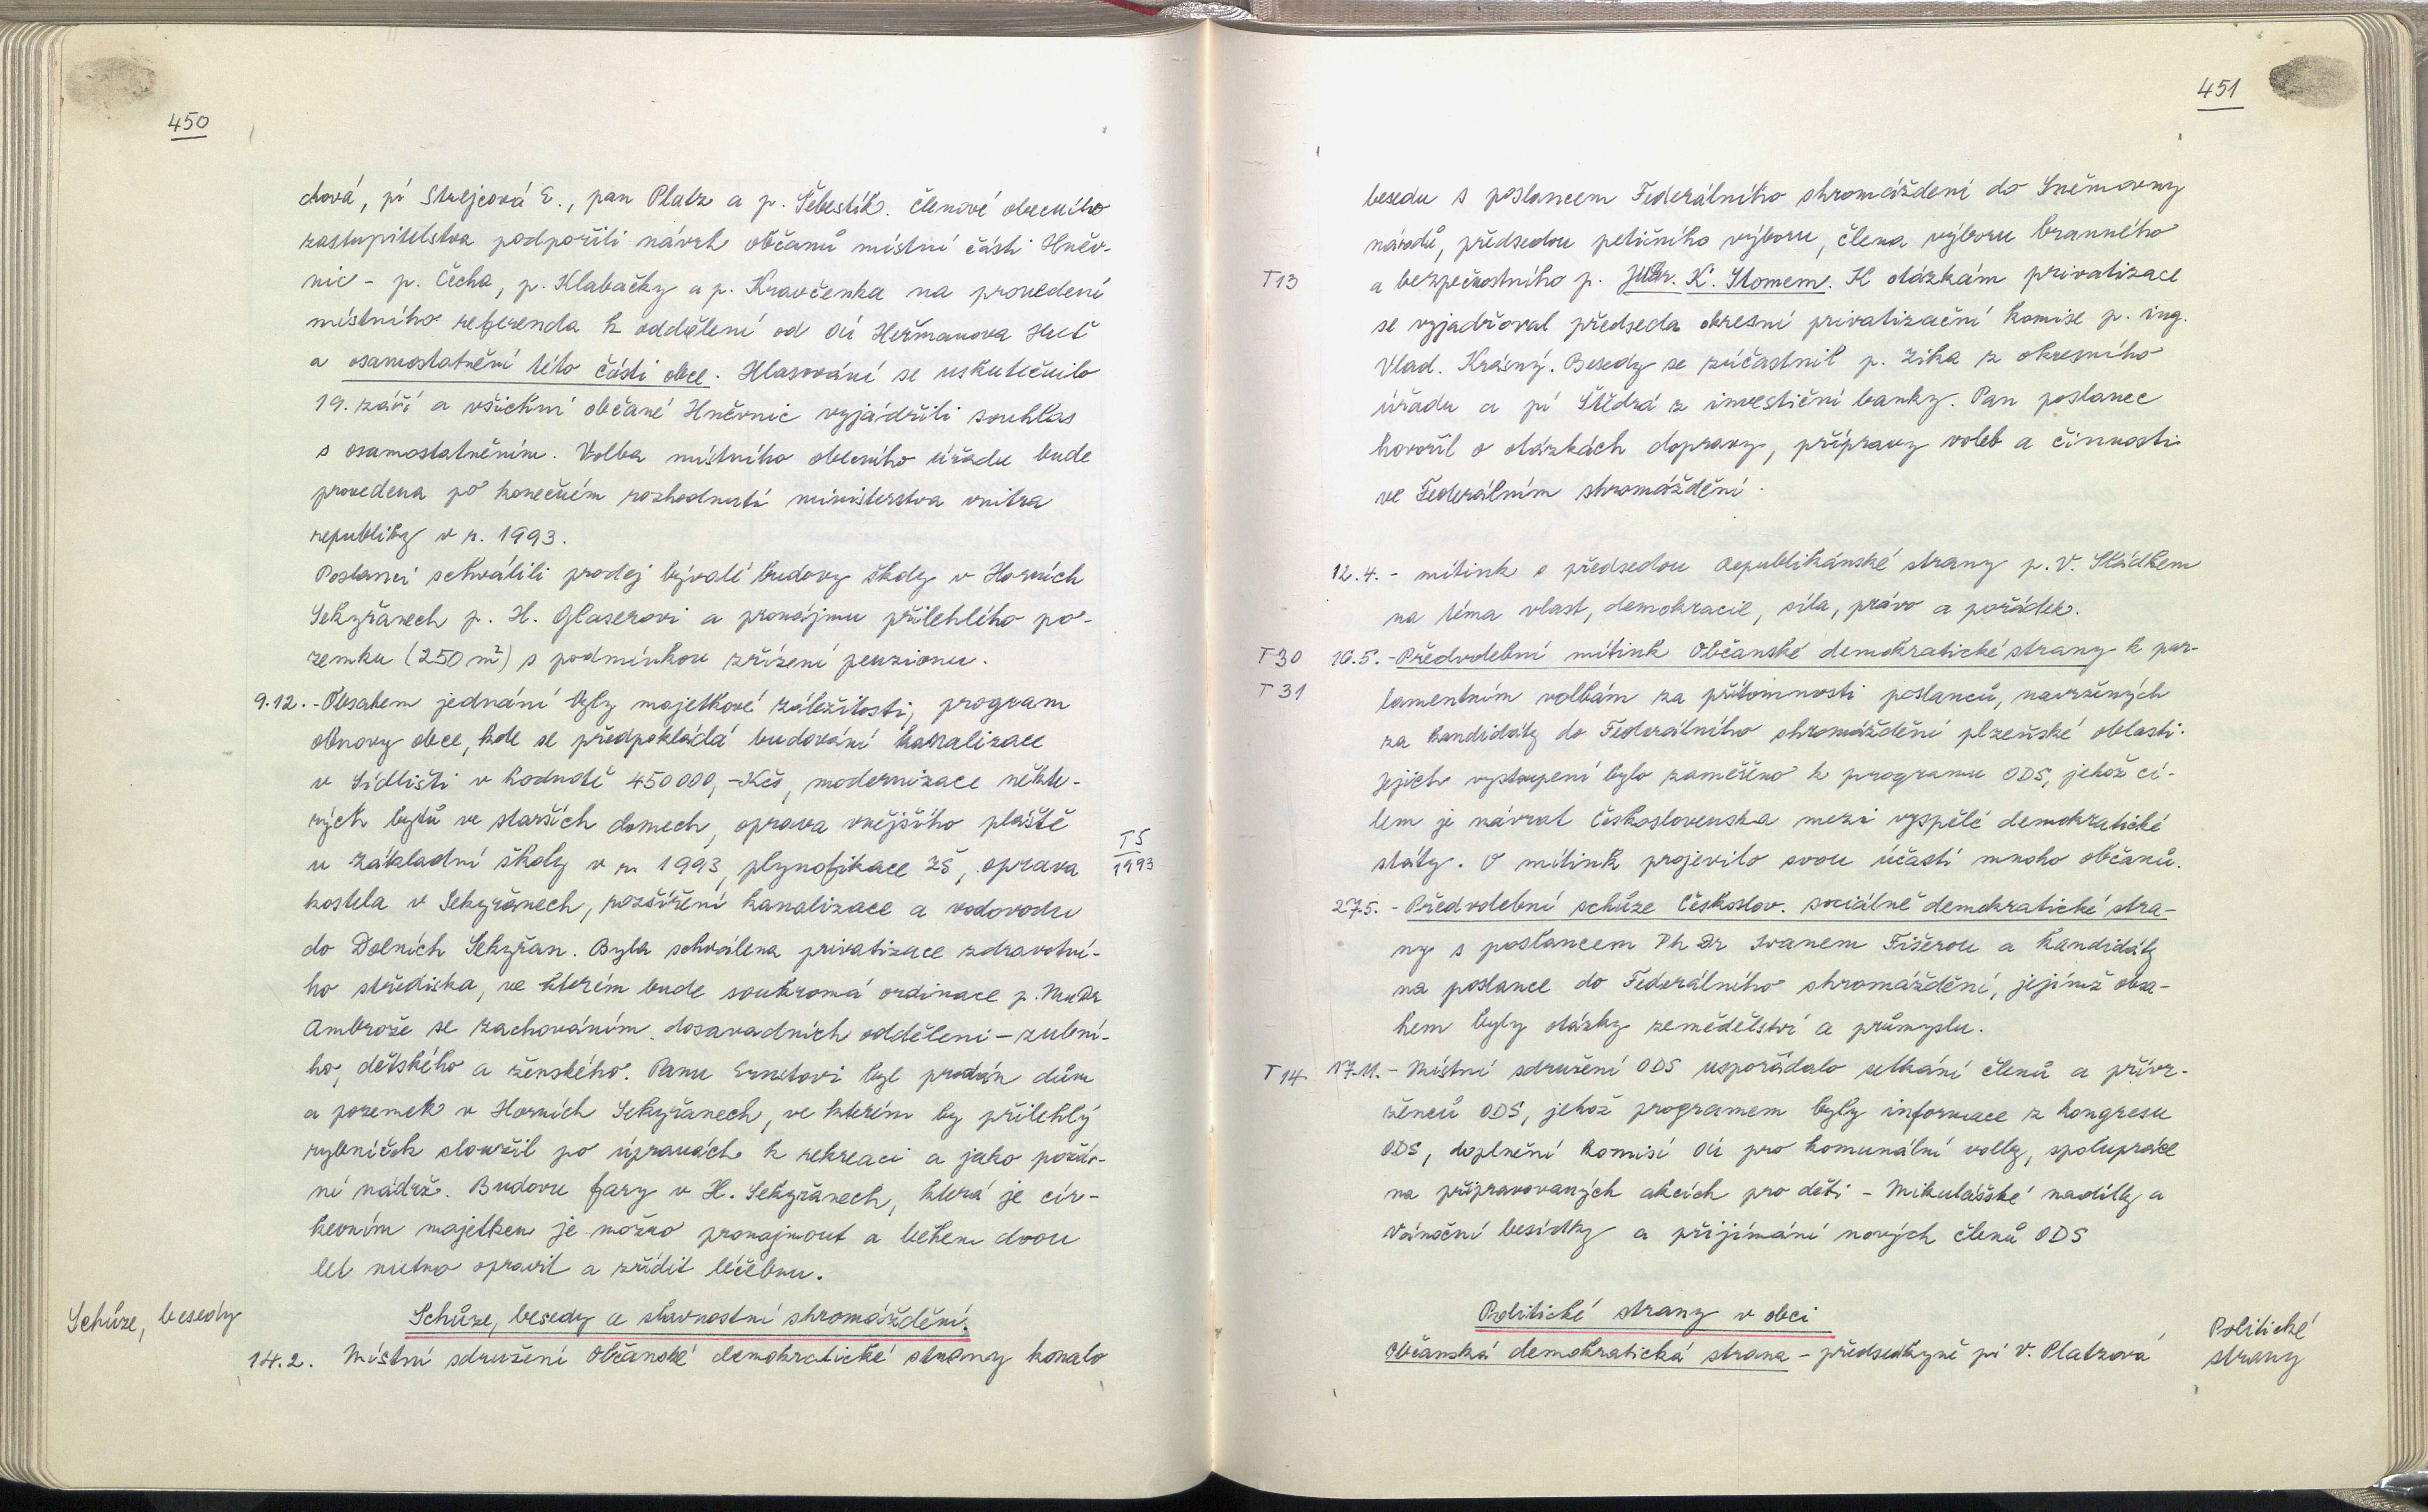 450
chová, pí Strejcová E., pan Platz a p. Šebestík. Členové obecního
zastupitelstva podpořili návrh občanů místní části Hněv-
nic - p. Čecha, p. Klabačky a p. Kravčenka na provedení
místního referenda k oddělení od OÚ Heřmanova Huť
a osamostatnění této části obce. Hlasování se uskutečnilo
19. září a všichni občané Hněvnic vyjádřili souhlas
s osamostatněním. Volba místního obecního úřadu bude
provedena po konečném rozhodnutí ministerstva vnitra
republiky v r. 1993.
Poslanci schválili prodej bývalé budovy školy v Horních
Sekyřanech p. H. Glaserovi a pronájmu přilehlého po-
zemku (250 m²) s podmínkou zřízení penzionu.
9.12. - Obsahem jednání byly majetkové záležitosti, program
obnovy obce, kde se předpokládá budování kanalizace
v Sídlišti v hodnotě 450 000,- Kčs, modernizace někte-
rých bytů ve starších domech, oprava vnějšího pláště
u základní školy v r. 1993, plynofikace ZŠ, oprava
T5
1993
kostela v Sekyřanech, rozšíření kanalizace a vodovodu
do Dolních Sekyřan. Byla schválena privatizace zdravotní-
ho střediska, ve kterém bude soukromá ordinace p. MuDr
Ambrože se zachováním dosavadních oddělení - zubní-
ho, dětského a ženského. Panu Ernstovi byl prodán dům
a pozemek v Horních Sekyřanech, ve kterém by přilehlý
rybníček sloužil po úpravách k rekreaci a jako požár-
ní nádrž. Budovu fary v H. Sekyřanech, která je cír-
kevním majetkem je možno pronajmout a během dvou
let nutno opravit a zřídit léčebnu.
Schůze, besedy
Schůze, besedy a slavnostní shromáždění.
14.2. Místní sdružení Občanské demokratické strany konalo
451
besedu s poslancem Federálního shromáždení do Sněmovny
národů, předsedou petičního výboru, člena výboru branného
T13 a bezpečnostního p. JuDr. K. Stomem. K otázkám privatizace
se vyjadřoval předseda okresní privatizační komise p. ing.
Vlad. Krásný. Besedy se zúčastnil p. Zika z okresního
úřadu a pí Štědrá z investiční banky. Pan poslanec
hovořil o otázkách dopravy, přípravy voleb a činnosti
ve Federálním shromáždění.
12.4. - mítink s předsedou Republikánské strany p. V. Sládkem
na téma vlast, demokracie, síla, právo a pořádek.
T30 16.5. - Předvolební mítink Občanské demokratické strany k par-
T31 lamentním volbám za přítomnosti poslanců, navržených
za kandidáty do Federálního shromáždění plzeňské oblasti.
Jejich vystoupení bylo zaměřeno k programu ODS, jehož cí-
lem je návrat Československa mezi vyspělé demokratické
státy. O mítink projevilo svou účastí mnoho občanů.
27.5. - Předvolební schůze Českoslov. sociálně demokratické stra-
ny s poslancem Ph Dr Ivanem Fišerou a kandidáty
na poslance do Federálního shromáždění, jejímž obsa-
hem byly otázky zemědělství a průmyslu.
T14 17.11. - Místní sdružení ODS uspořádalo setkání členů a přívr-
ženců ODS, jehož programem byly informace z kongresu
ODS, doplnění komisí OÚ pro komunální volby, spolupráce
na připravovaných akcích pro děti - Mikulášské nadílky a
Vánoční besídky a přijímání nových členů ODS
Politické strany v obci
Občanská demokratická strana - předsedkyně pí V. Platzová
Politické
strany